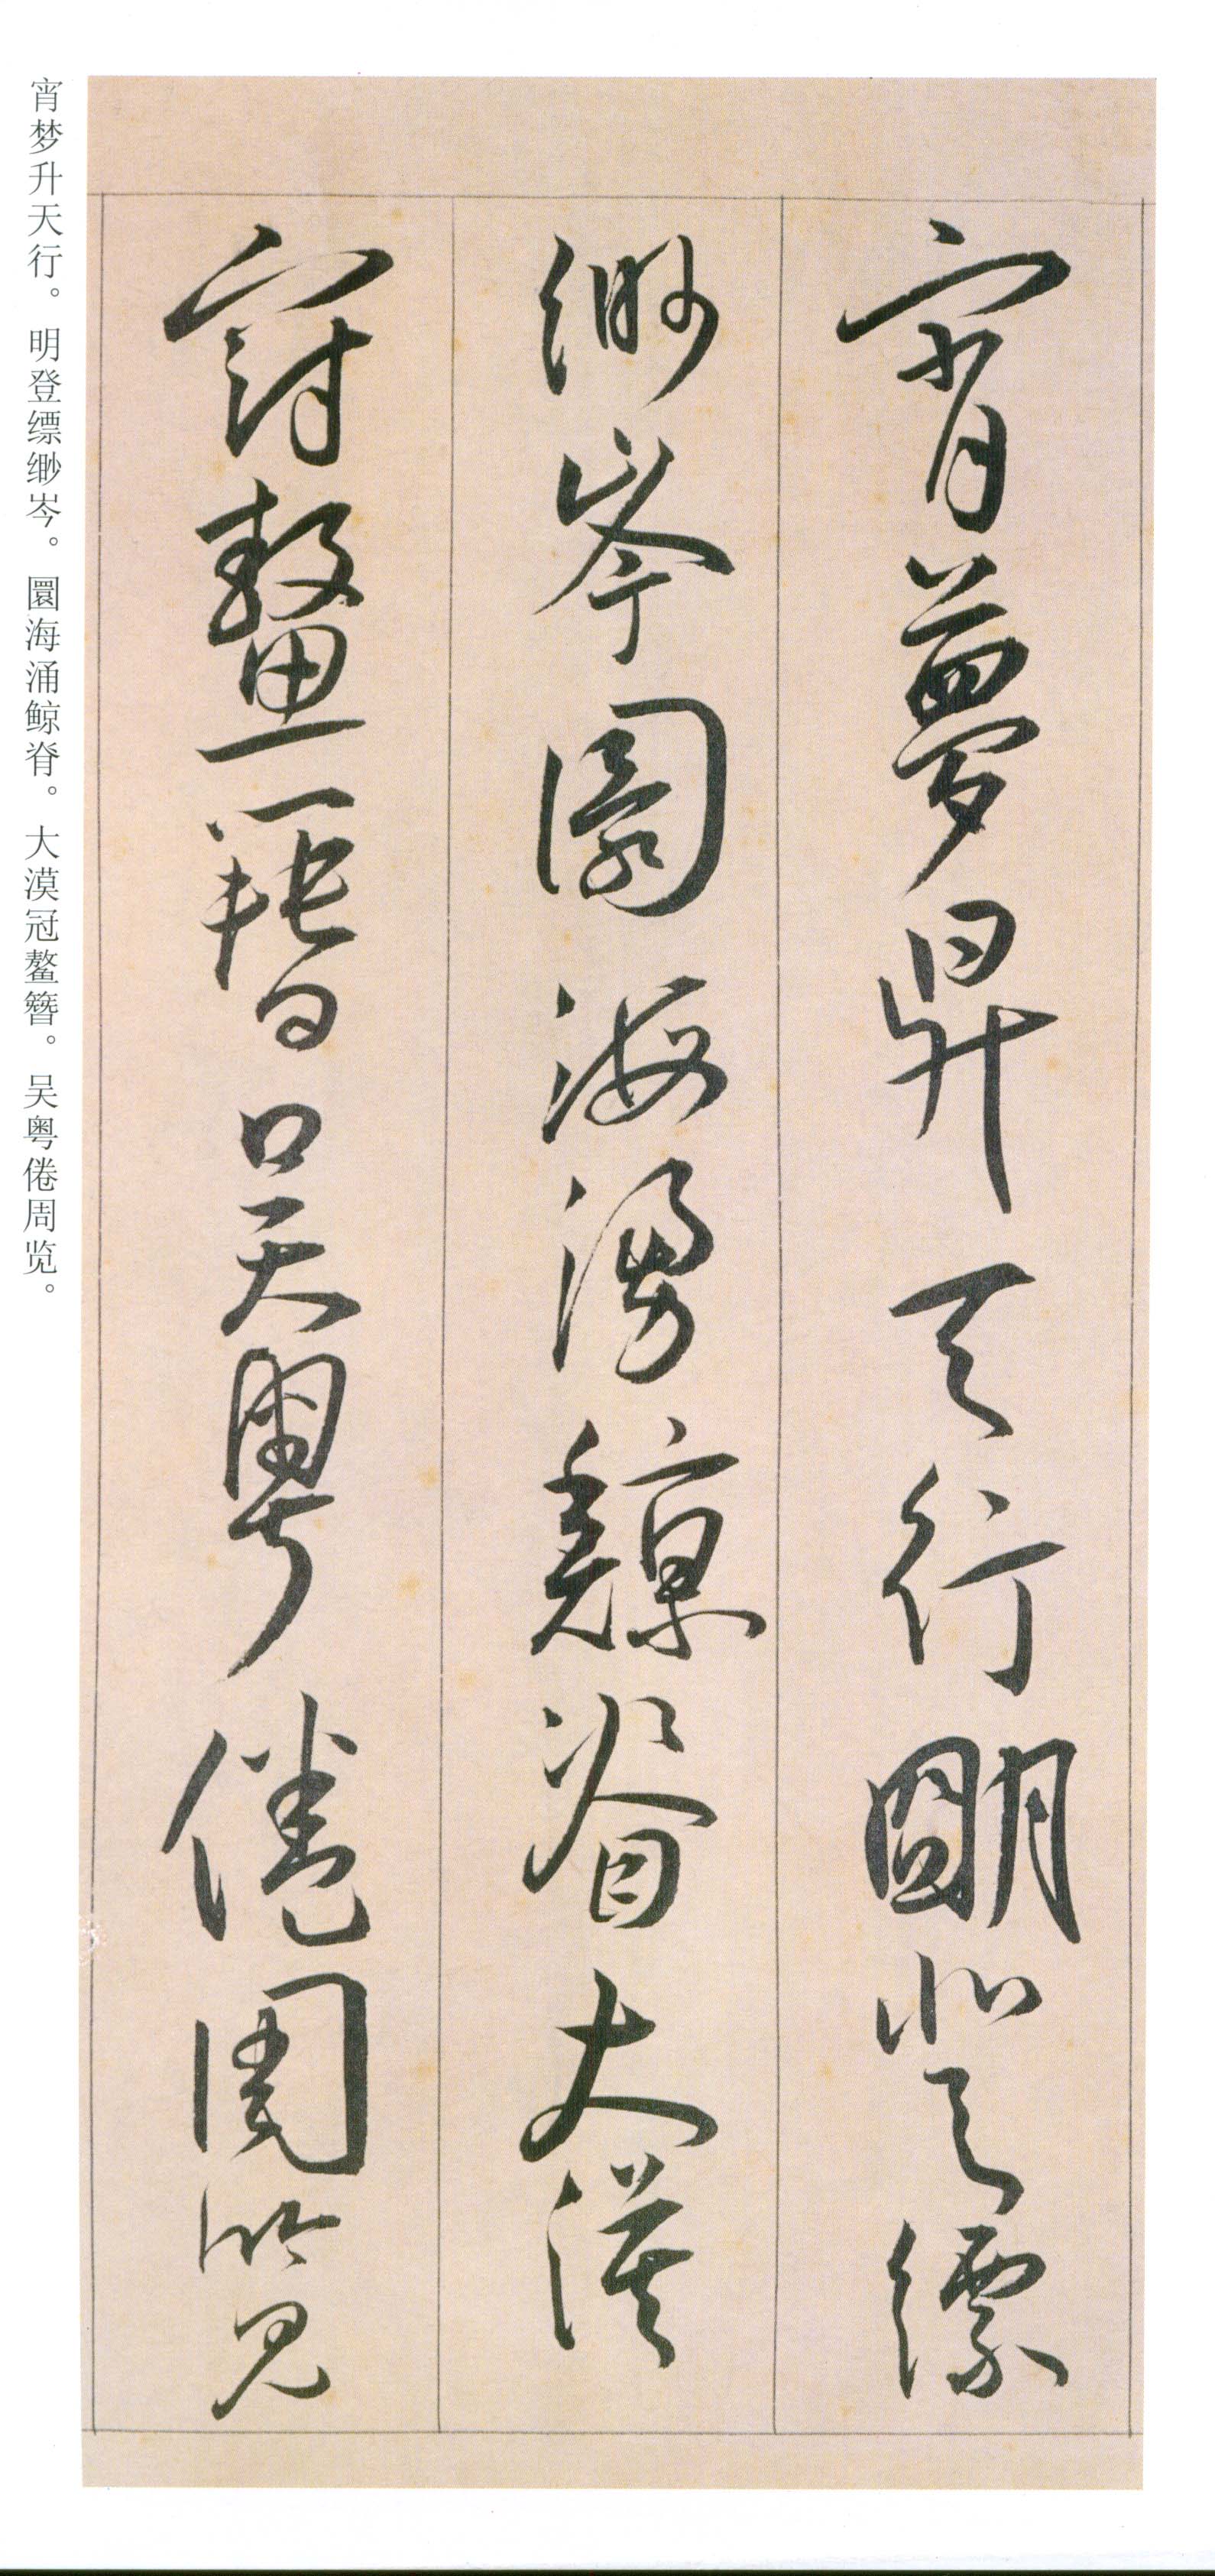 宵夢昇天行朙登縹
緲岑圜海湧鯨脊大漠
冠鰲簪吳粵倦周覽
宵梦升天行。明登缥缈岑。圜海涌鲸脊。大漠冠鳌簪。吴粤倦周览。